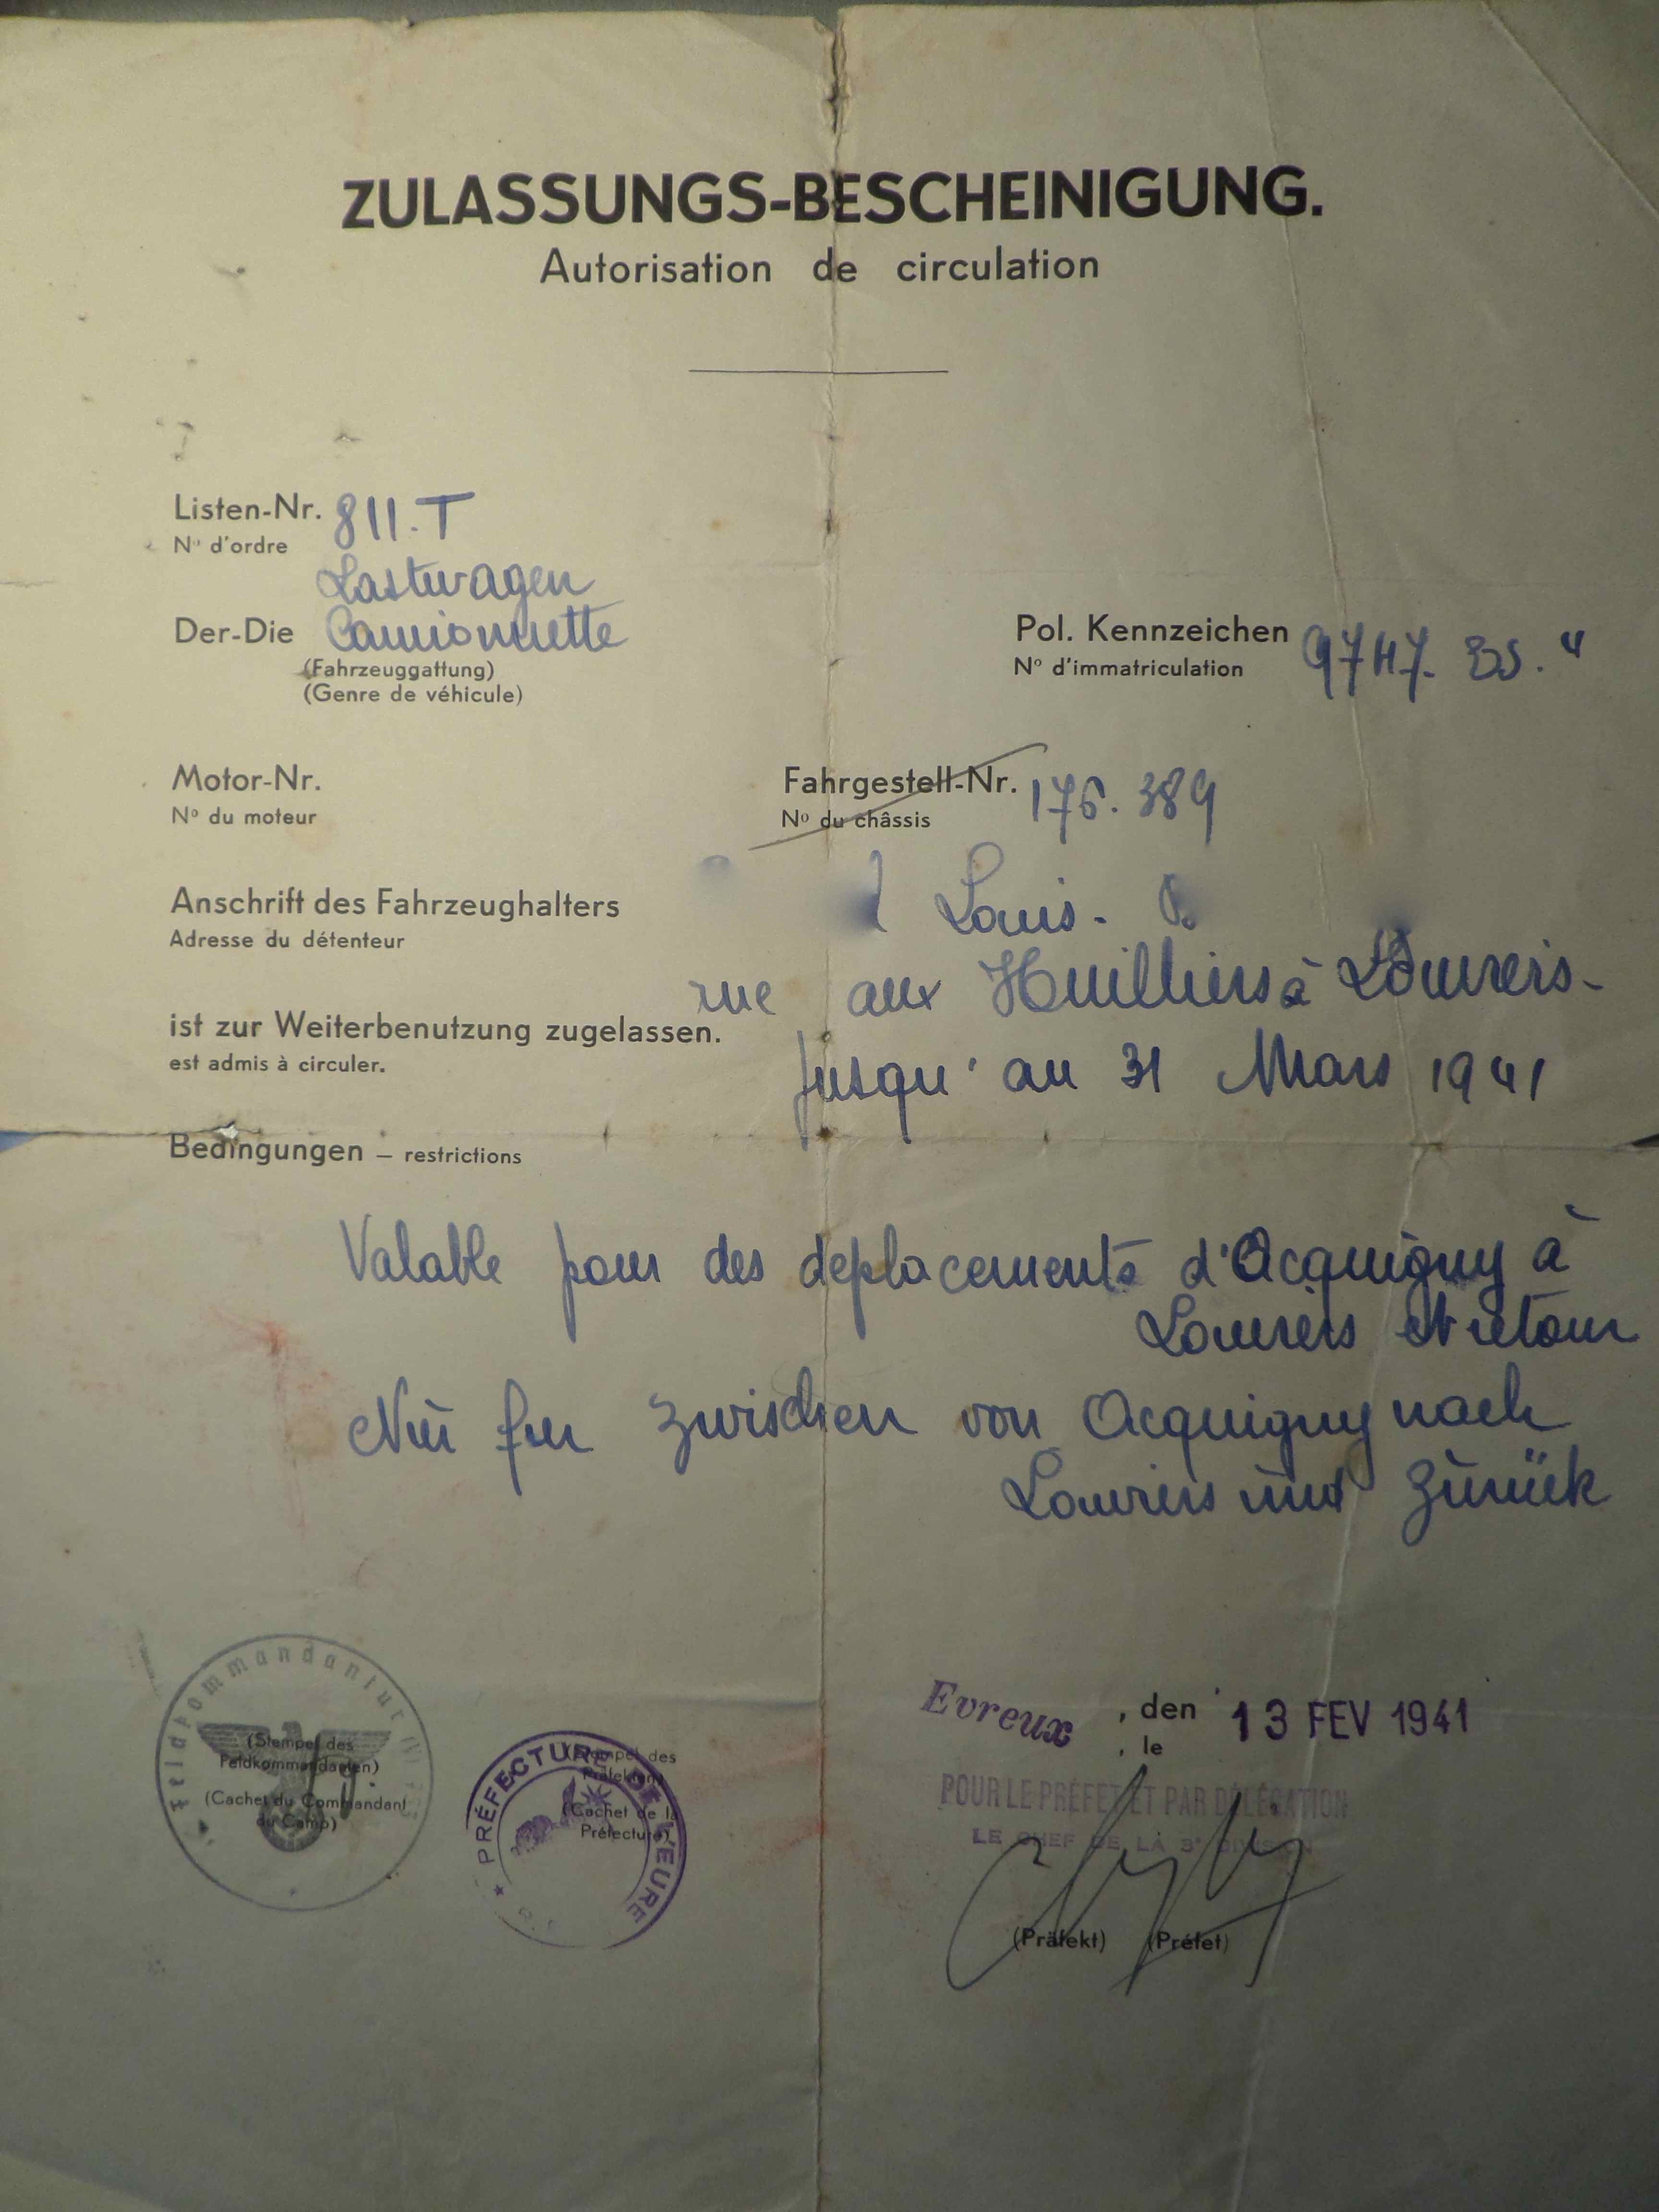 ZULASSUNGS-BESCHEINIGUNG.
Autorisation de circulation
Listen-Nr. 811.T
N° d'ordre
Lastwagen
Der-Die Camionnette
(Fahrzeuggattung)
(Genre de véhicule)
Pol. Kennzeichen
N° d'immatriculation
Motor-Nr.
N° du moteur
Fahrgestell-Nr. 176.389
N° du châssis
Anschrift des Fahrzeughalters Louis.
Adresse du détenteur
rue aux Huilliers à Louviers-
ist zur Weiterbenutzung zugelassen.
est admis à circuler.
jusqu'au 31 Mars 1941
Bedingungen – restrictions
Valable pour des deplacements d'Acquigny à
Louviers et retour
Nur fur zwischen von Acquigny nach
Louviers und zurück
Feldkommandantur
(Stempel des
Feldkommandanten)
(Cachet du Commandant
du Camp)
PRÉFECTURE DE L'EURE
(Stempel des
Präfekten)
(Cachet de la
Préfecture)
Evreux, den 13 FEV 1941
, le
POUR LE PRÉFET ET PAR DÉLÉGATION
LE CHEF DE LA 3e DIVISION
(Präfekt) (Préfet)